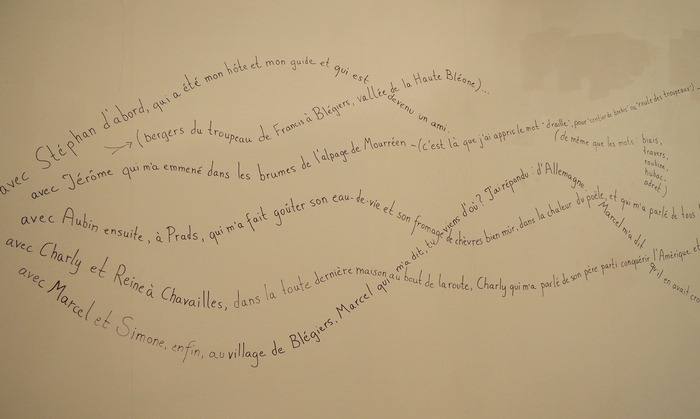 avec Stéphan d'abord, qui a été mon hôte et mon guide et qui est devenu un ami.
(bergers du troupeau de Francis à Blégiers, vallée de la Haute Bléone)...
avec Jérôme qui m'a emmené dans les brumes de l'alpage de Mourréen - (c'est là que j'ai appris le mot "draille", pour "route des troupeaux") -
(de même que les mots biais,
travers,
roubine,
hubac,
adret)
avec Aubin ensuite, à Prads, qui m'a fait goûter son eau-de-vie et son fromage de chèvres bien mûr, dans la chaleur du poêle, et qui m'a parlé de tous
avec Charly et Reine à Chavailles, dans la toute dernière maison au bout de la route, Charly qui m'a parlé de son père parti conquérir l'Amérique et
avec Marcel et Simone, enfin, au village de Blégiers, Marcel qui m'a dit, tu viens d'où? J'ai répondu: d'Allemagne. Marcel m'a dit qu'il en avait